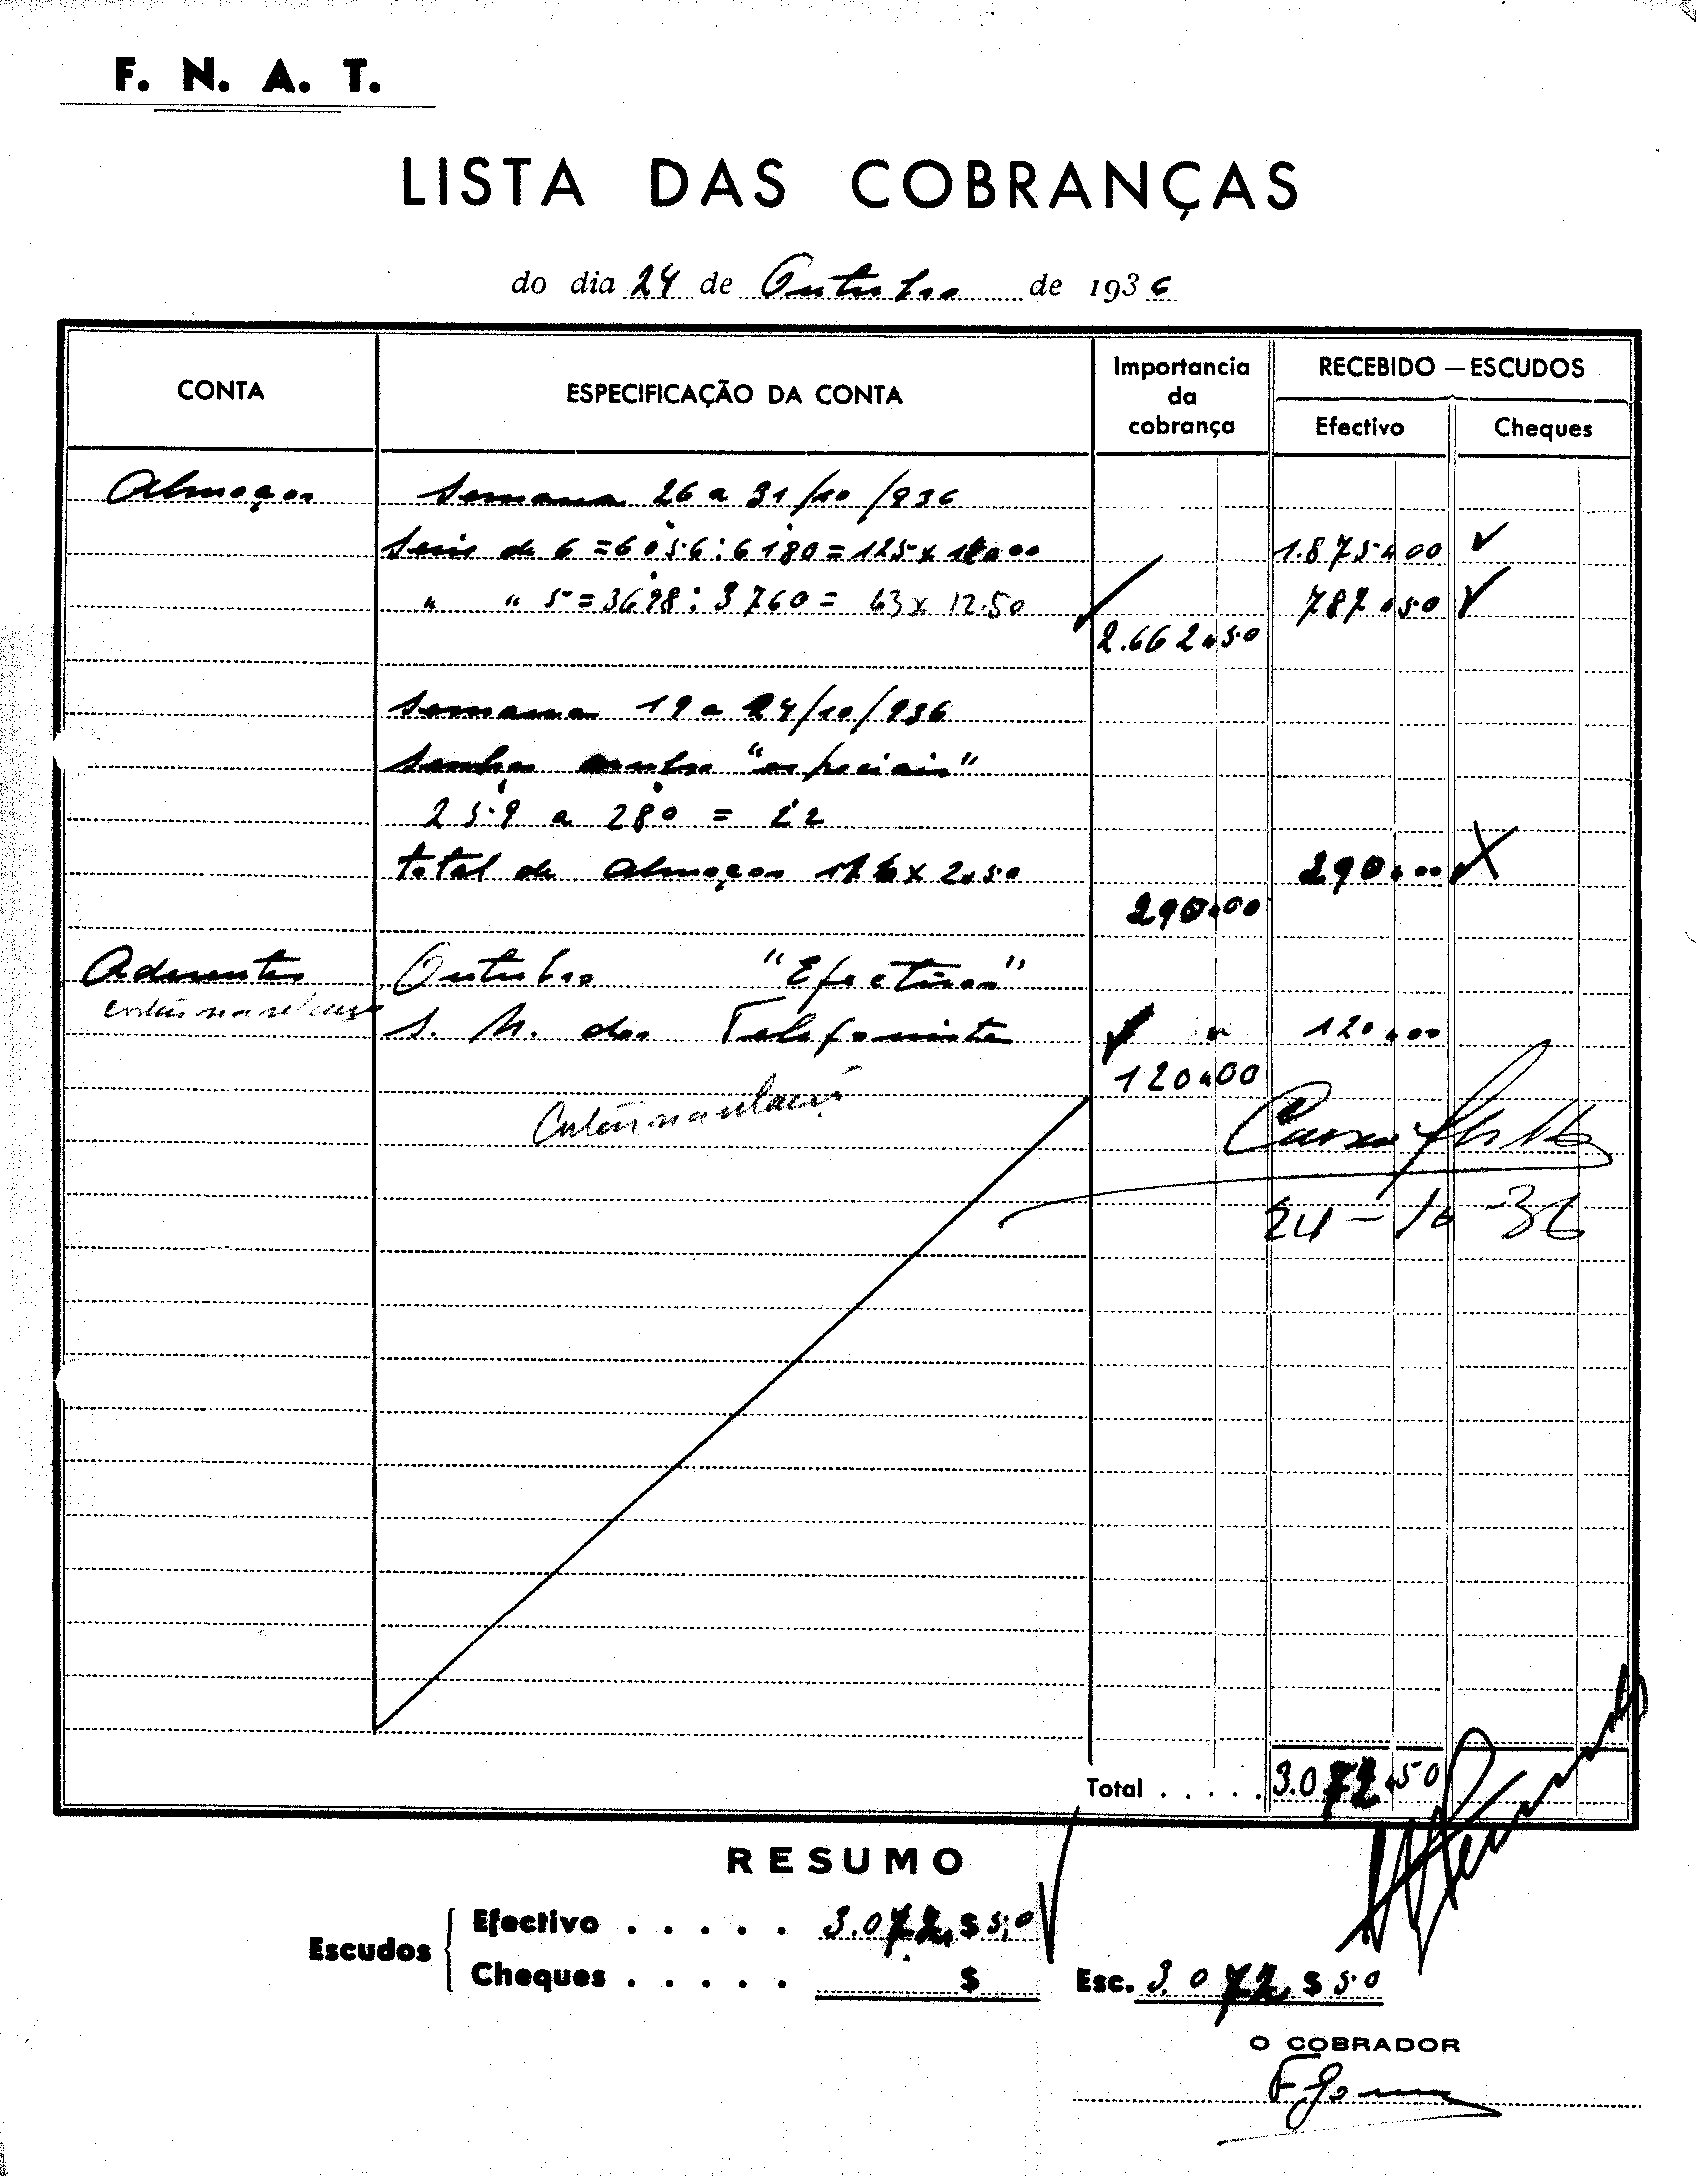 F. N. A. T.
LISTA DAS COBRANÇAS
do dia 24 de Outubro de 1936
CONTA
ESPECIFICAÇÃO DA CONTA
Importancia da cobrança
RECEBIDO — ESCUDOS
Efectivo
Cheques
Almoços Semana 26 a 31/10/936
Series de 6 = 6056 : 6180 = 125 x 15,00 1.875,00
" " 5 = 3698 : 3760 = 63 x 12.50 787,50
2.662,50
Semana 19 a 24/10/936
Senhas "especiais"
259 a 280 = 22
total de Almoços 116 x 2,50 290,00
290,00
Aderentes Outubro "Efectivos"
S. N. dos Telefonistas " 120,00
120,00
24-10-36
Total . . . . . 3.072,50
RESUMO
Escudos
Efectivo . . . . . 3.072,$50
Cheques . . . . . $
Esc. 3.072,$50
O COBRADOR